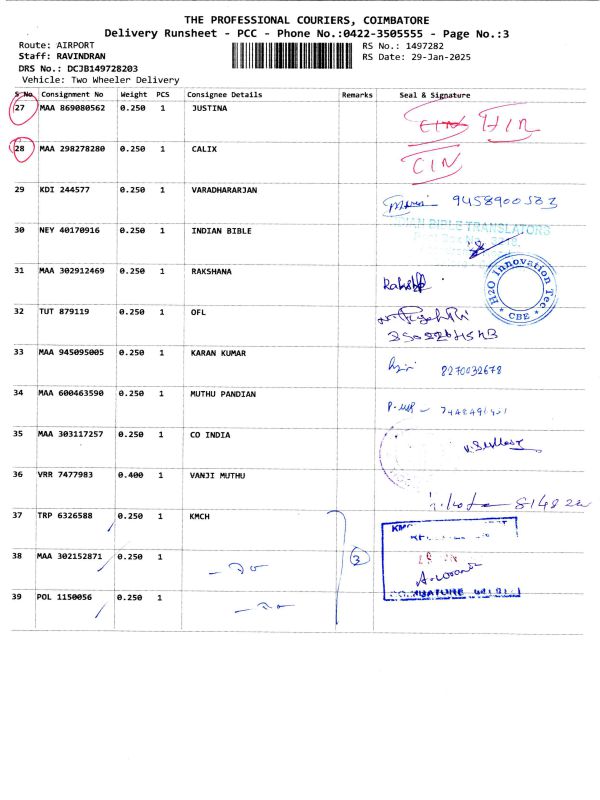 THE PROFESSIONAL COURIERS, COIMBATORE
Delivery Runsheet - PCC - Phone No.:0422-3505555 - Page No.:3
Route: AIRPORT RS No.: 1497282
Staff: RAVINDRAN RS Date: 29-Jan-2025
DRS No.: DCJB149728203
Vehicle: Two Wheeler Delivery
S No Consignment No Weight PCS Consignee Details Remarks Seal & Signature
27 MAA 869080562 0.250 1 JUSTINA
28 MAA 298278280 0.250 1 CALIX CIN
29 KDI 244577 0.250 1 VARADHARARJAN 9458900583
30 NEY 40170916 0.250 1 INDIAN BIBLE BIBLE TRANSLATORS
31 MAA 302912469 0.250 1 RAKSHANA H2O Innovation Tec CBE
32 TUT 879119 0.250 1 OFL
33 MAA 945095005 0.250 1 KARAN KUMAR 8270032678
34 MAA 600463590 0.250 1 MUTHU PANDIAN
35 MAA 303117257 0.250 1 CO INDIA
36 VRR 7477983 0.400 1 VANJI MUTHU
37 TRP 6326588 0.250 1 KMCH
38 MAA 302152871 0.250 1 3
39 POL 1150056 0.250 1